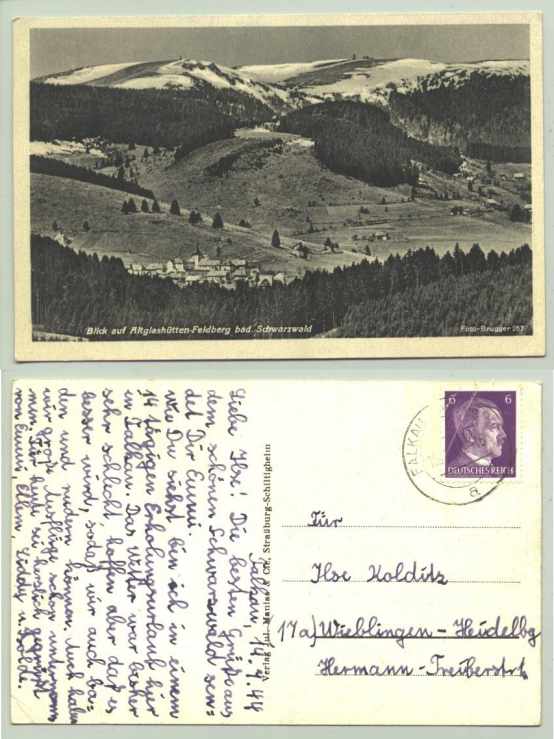 Blick auf Altglashütten-Feldberg bad. Schwarzwald
Foto-Brugger 257
Falkau, 14.7.44
Liebe Ilse! Die besten Grüße aus
dem schönen Schwarzwald sen-
det Dir Emmi.
Wie Du siehst bin ich in einem
14 tägigen Erholungsurlaub hier
in Falkau. Das Wetter war bisher
sehr schlecht, hoffen aber daß es
besser wird, sodaß wir auch ba-
den und rudern können. Auch haben
wir große Ausflüge schon unternom
men. Für heute sei herzlich gegrüßt
von Emmi, Ellen, Liddy u. Isolde.
Verlag Jul. Manias & Cie, Straßburg-Schiltigheim
FALKAU
a
6 6
DEUTSCHES REICH
Für
Ilse Kolditz
17a) Wieblingen - Heidelbg
Hermann-Treiberstr.